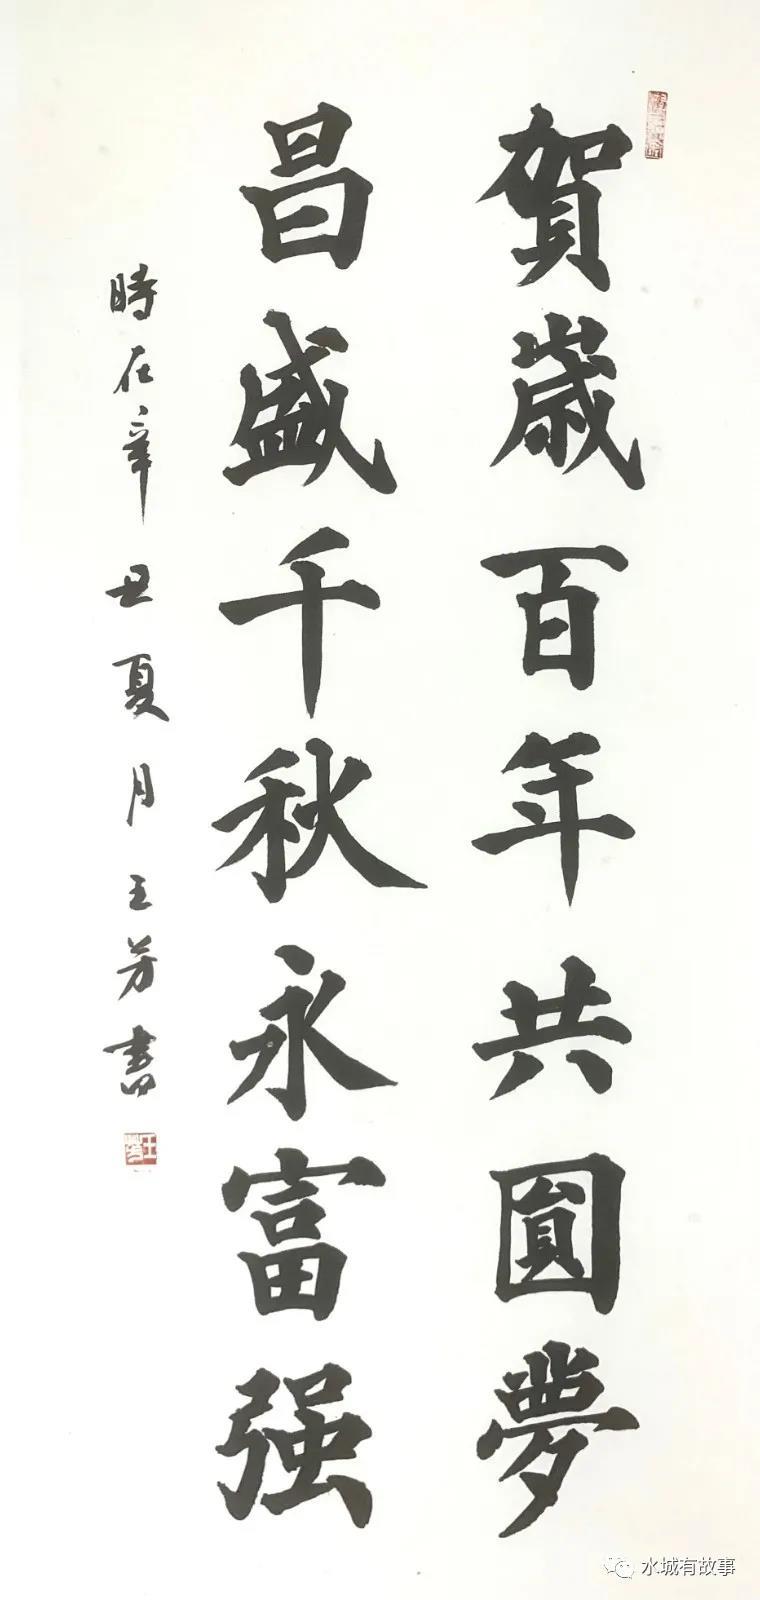 賀歲百年共圓夢
昌盛千秋永富强
時在辛丑夏月王芳書
王芳
水城有故事